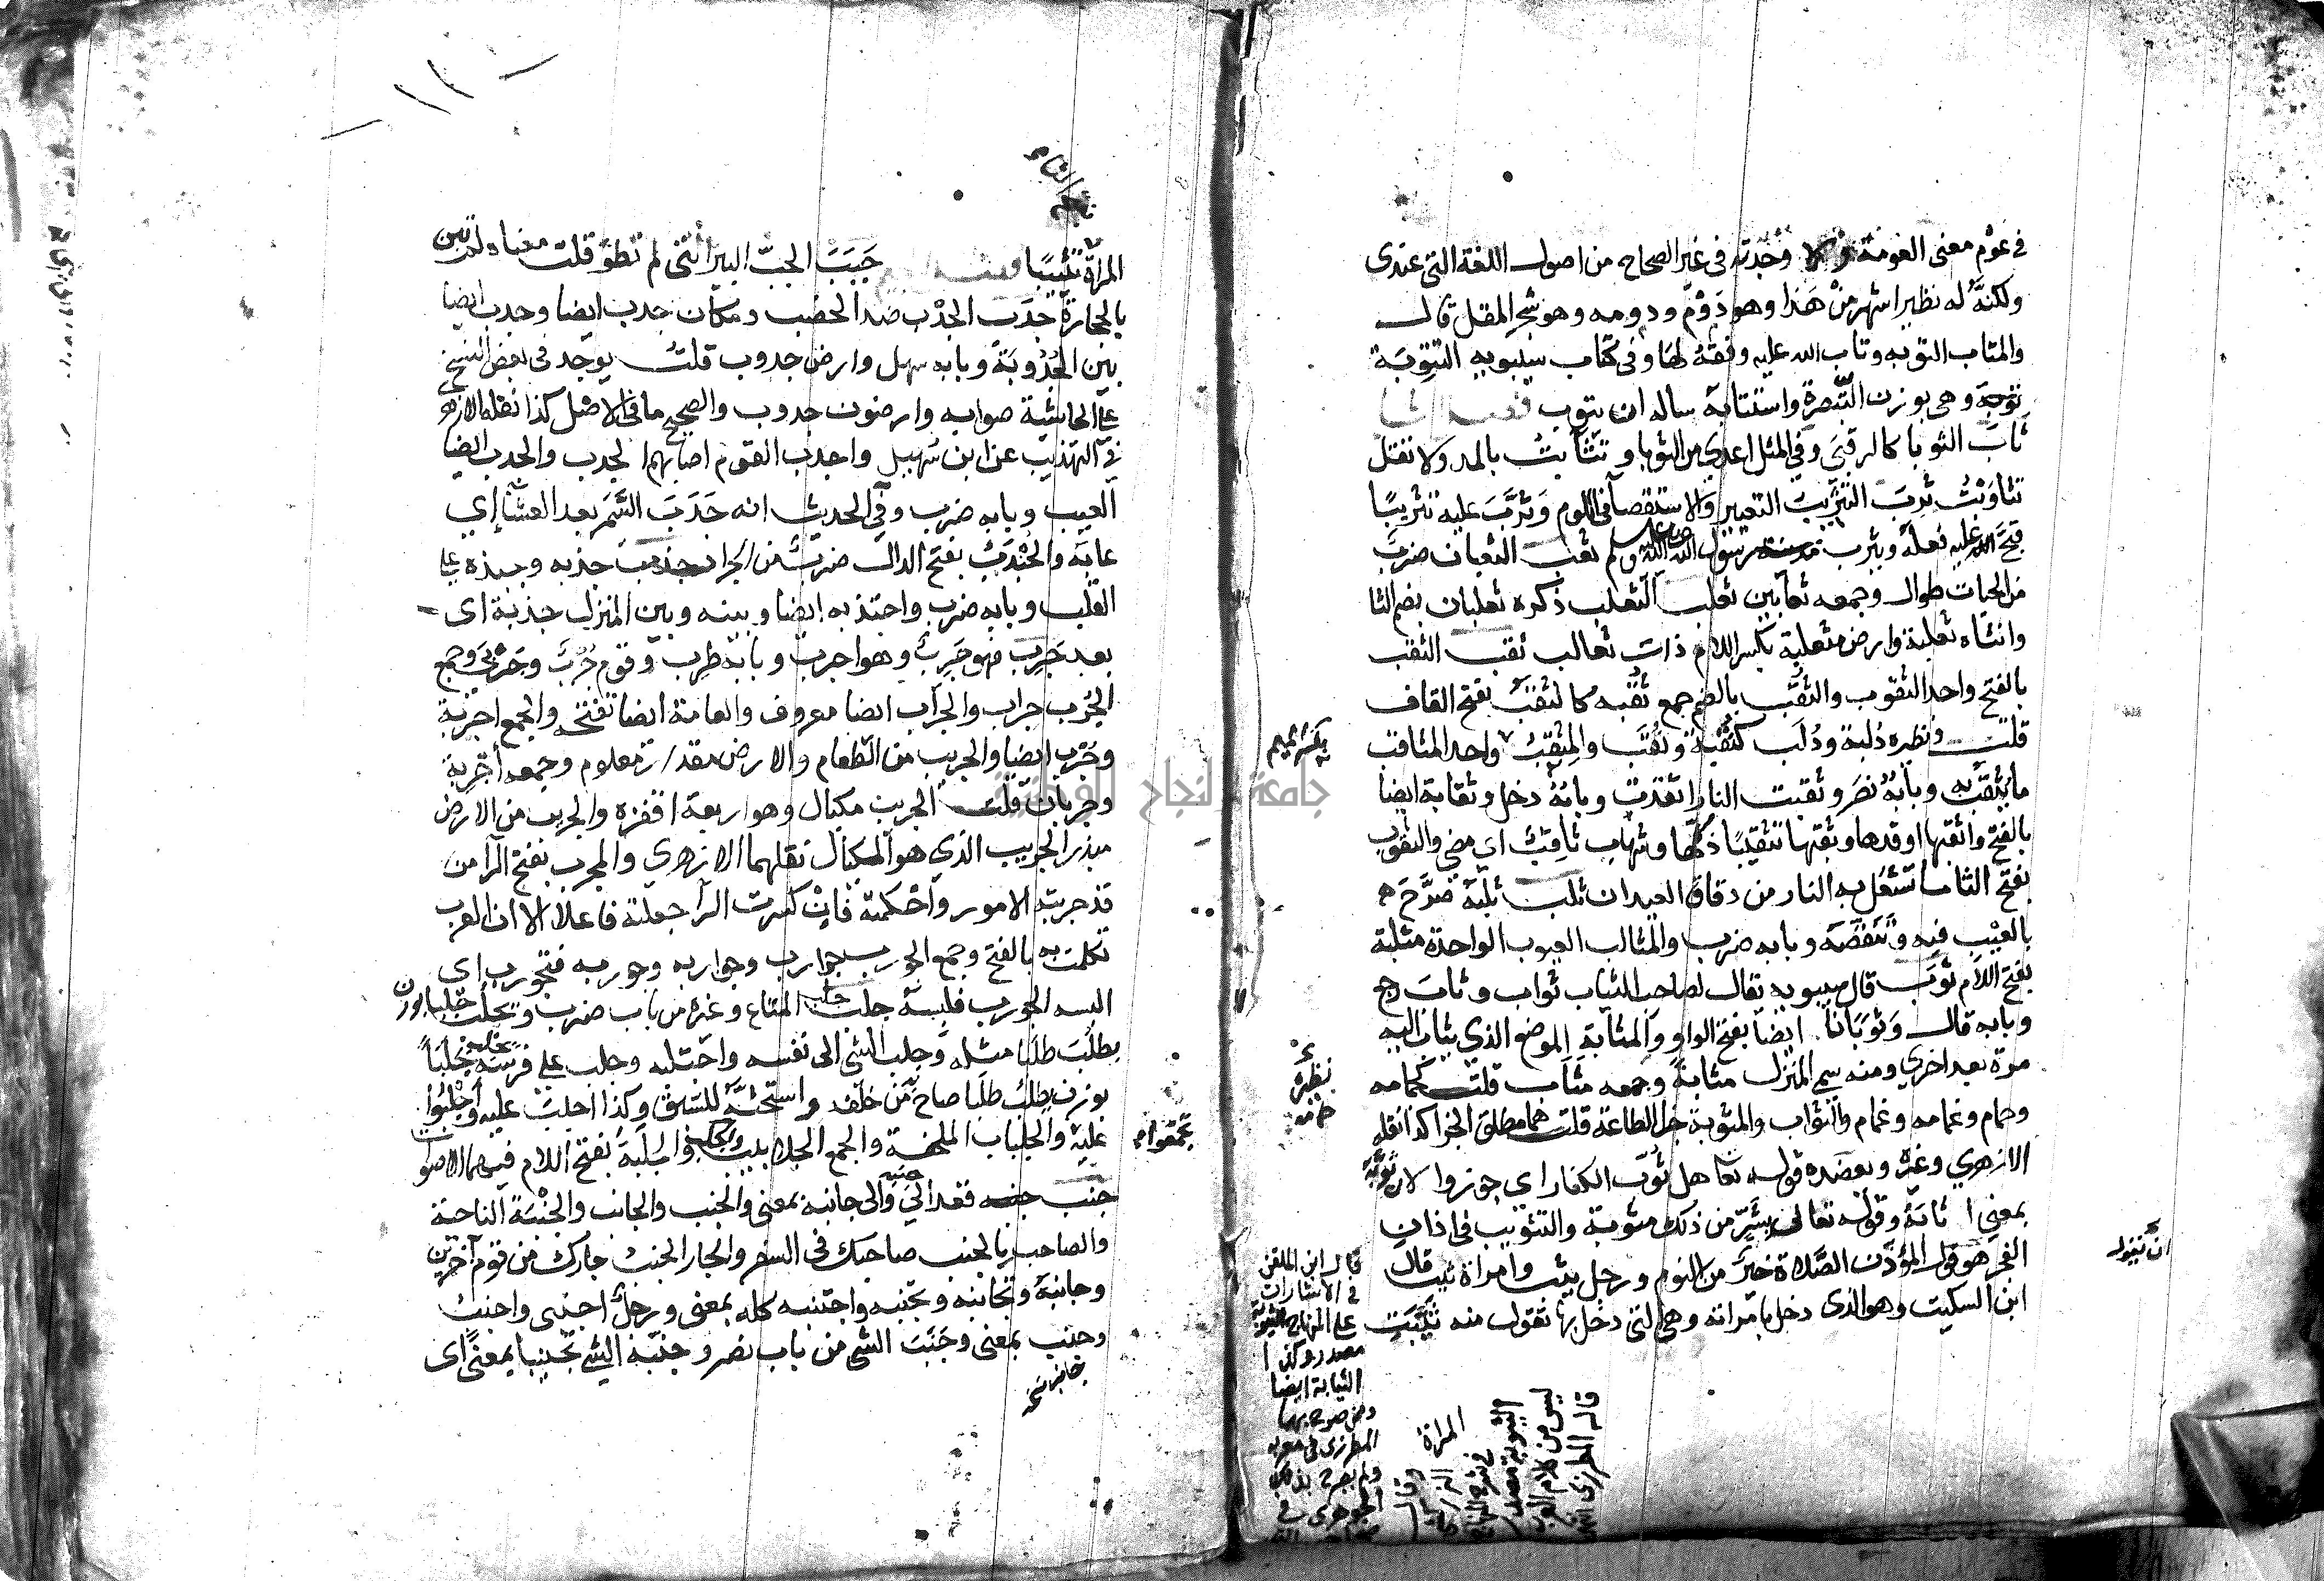 في عوم معنى العومة ولا وجدته في غير الصحاح من اصول اللغة التي عندى
ولكنه له نظير اشهر من هذا وهو دوم ودومه وهو شجر المقل قال
والمتاب التوبه وتاب الله عليه وفقه لها وفي كتاب سيبويه التتوبة
توبة وهي بوزن التبصرة واستتابة ساله ان يتوب فصل الثا
ثاب الثوبا كالرقبى وفي المثل اعدى من الثوبا و تثابت بالمد ولا تقل
تثاوبت ثرب التثريب التعيير والاستقصا في اللوم وثرب عليه تثريبا
قبح عليه فعله ويثرب مدينة رسول الله صلى الله عليه وسلم ثعب الثعبان ضرب
من الحيات طوال وجمعه ثعابين ثعلب الثعلب ذكره ثعلبان بضم الثا
وانثاه ثعلبة وارض مثعلبة بكسر اللام ذات ثعالب ثقب الثقب
بالفتح واحد الثقوب والثقب بالضم جمع ثقبه كالثقب بفتح القاف
قلت ونظيره دلبة ودلب كثقبة وثقب والمثقب واحد المثاقب
بكسر الميم
ما يثقب به وبابه نصر وثقبت النار اتقدت وبابه دخل وثقابة ايضا
بالفتح واثقبها اوقدها وثقبها تثقيبا ذكاها وشهاب ثاقب اي مضى والثقوب
بفتح الثا ما تشعل به النار من دقاق العيدان ثلب ثلبه صرح
بالعيب فيه وتنقصه وبابه ضرب والمثالب العيوب الواحدة مثلبة
بفتح اللام ثوب قال سيبويه يقال لصاحب الثياب ثواب وثاب رجع
وبابه قال وثوبانا ايضا بفتح الواو والمثابة الموضع الذي يثاب اليه
مرة بعد اخرى ومنه سمي المنزل مثابة وجمعه مثاب قلت كحمامه
نظيره
حمامة
وحمام وغمامه وغمام والثواب والمثوبة جزا الطاعة قلت هما مطلق الجزا كذا نقله
الازهري وغيره ويعضده قوله تعا هل ثوب الكفار اي جوزوا لان ثوبه
بمعنى اثابه وقوله تعالى بشر من ذلك مثوبة والتثويب في اذان
الفجر هو قول المؤذن الصلاة خير من النوم ورجل ثيب وامراة ثيب قال
ان يقول
ابن السكيت وهو الذى دخل بامراته وهي التي دخل بها تقول منه ثيبت
قال ابن الملقن
في الاشارات
على المنهاج الثيوبة
مصدر وكذا
الثيابة ايضا
وممن صرح بهما
المطرزى في معربه
ولم يصرح بذلك
الجوهرى في
قال المطرزى
ليس من كلام العرب
المراة
١١
المراة تثييبا جبب الجب البير التي لم تطو قلت معناه لم تبن
بالحجارة جدب الجدب ضد الخصب ومكان جدب ايضا وجدب ايضا
بين الجدوبة وبابه سهل وارض جدوب قلت يوجد في بعض النسخ
على الحاشية صوابه وارضون جدوب والصحيح ما في الاصل كذا نقله الازهري
في التهذيب عن ابن شميل واجدب القوم اصابهم الجدب والجدب ايضا
العيب وبابه ضرب وفي الحديث انه جدب السمر بعد العشا اي
عابه والجندب بفتح الدال ضرب من الجراد جذب جذبه وجبذه على
القلب وبابه ضرب واجتذبه ايضا وبينه وبين المنزل جذبة اى
بعد جرب فهو جرب وهو اجرب وبابه طرب وقوم جرب وجربى وجمع
الجرب جراب والجراب ايضا معروف والعامة ايضا تفتحه والجمع اجربة
وجرب ايضا والجريب من الطعام والارض مقدار معلوم وجمعه اجربة
وجربان قلت الجريب مكيال وهو اربعة اقفزه والجريب من الارض
مبذر الجريب الذي هو المكيال نقلهما الازهري والمجرب بفتح الرا من
قد جربته الامور واحكمته فان كسرت الرا جعلته فاعلا الا ان العرب
تكلمت به بالفتح وجمع الجورب جوارب وجواربه وجوربه فتجورب اى
البسه الجورب فلبسه جلب المتاع وغيره من باب ضرب ويجلب جلبا بوزن
يطلب طلبا مثله وجلب الشي الى نفسه واجتلبه وجلب على فرسه يجلب جلبا
بوزن يطلب طلبا صاح من خلفه واستحثه للسبق وكذا اجلب عليه واجلبوا
تجمعوا
عليه والجلباب الملحفة والجمع الجلابيب والجلب والجلبة بفتح اللام فيهما الاصوات
جنب قعد الى جنبه والى جانبه بمعنى والجنب والجانب والجنبة الناحية
والصاحب بالجنب صاحبك في السفر والجار الجنب جارك من قوم آخرين
وجانبه وتجانبه وتجنبه واجتنبه كله بمعنى ورجل اجنبى واجنب
وجنب بمعنى وجنب الشى من باب نصر وجنبه الشي تجنيبا بمعنى اى